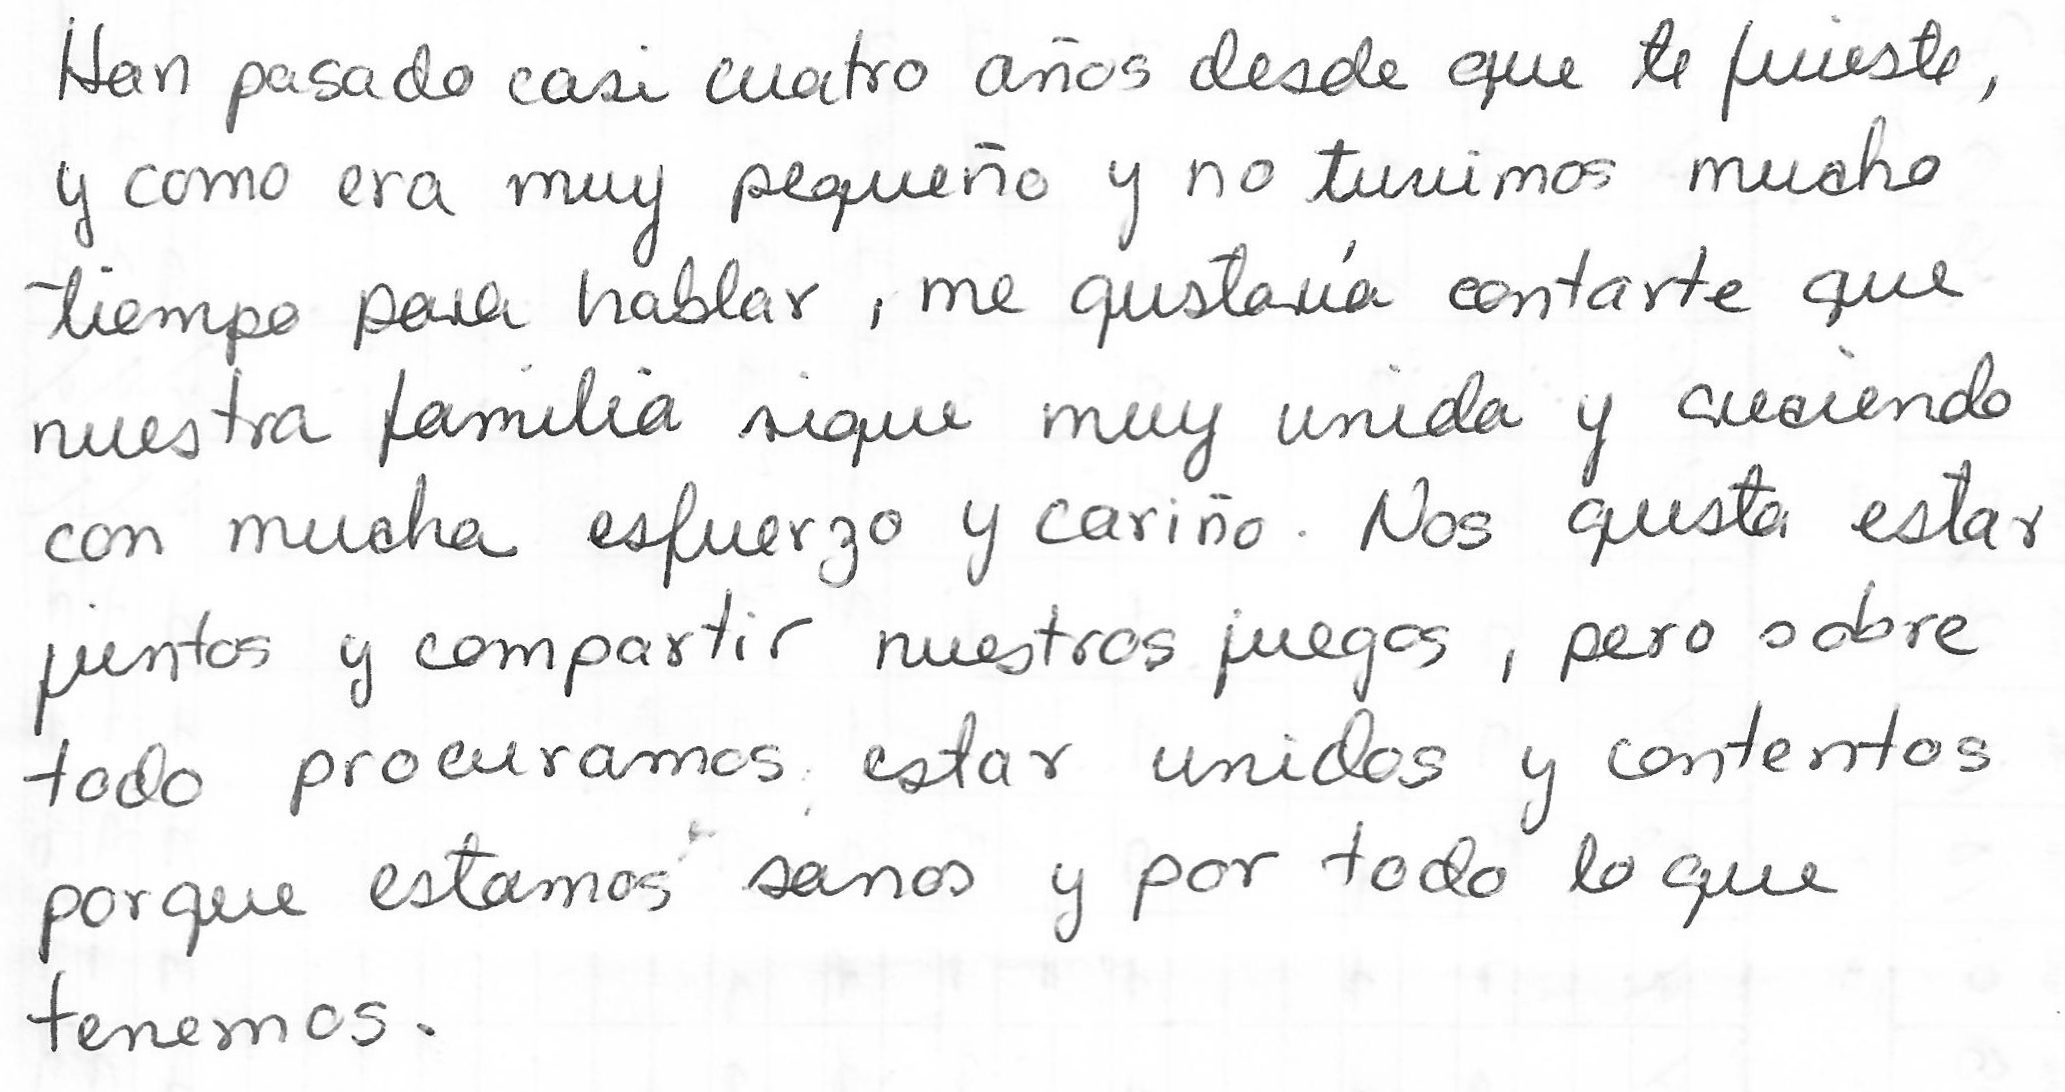 Han pasado casi cuatro años desde que te fuieste,
y como era muy pequeño y no tuvimos mucho
tiempo para hablar, me gustaría contarte que
nuestra familia sigue muy unida y creciendo
con mucha esfuerzo y cariño. Nos gusta estar
juntos y compartir nuestros juegos, pero sobre
todo procuramos estar unidos y contentos
porque estamos sanos y por todo lo que
tenemos.